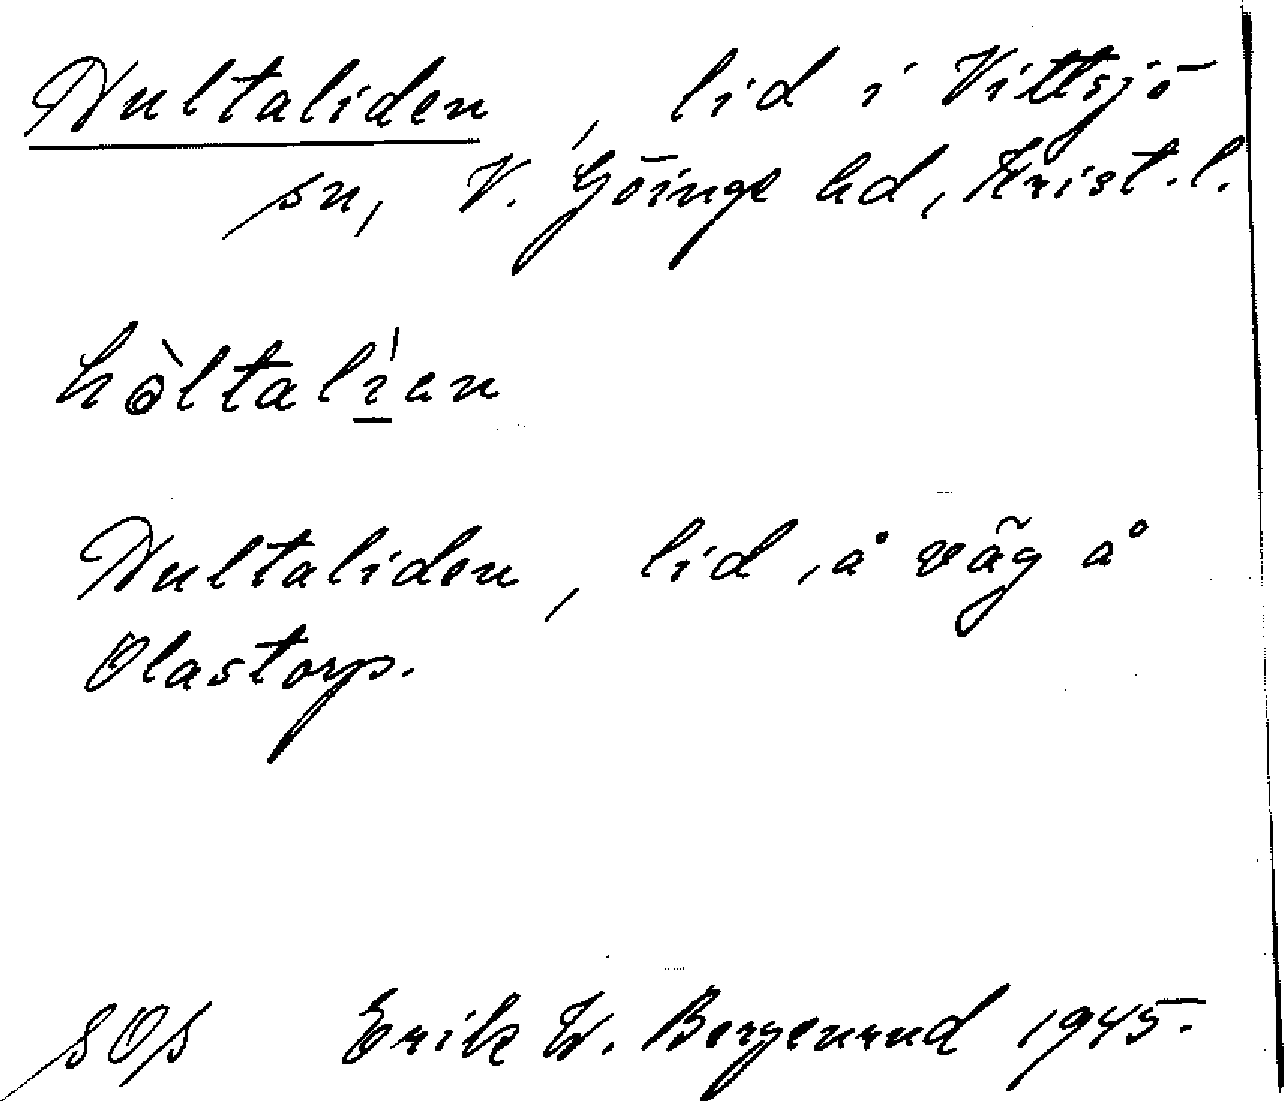 Hultaliden, lid i Vittsjö
sn, V. Göinge hd, Krist. l.
hòltalian
Hultaliden, lid, å väg å
Olastorp.
Erik W. Bergenrud 1945.